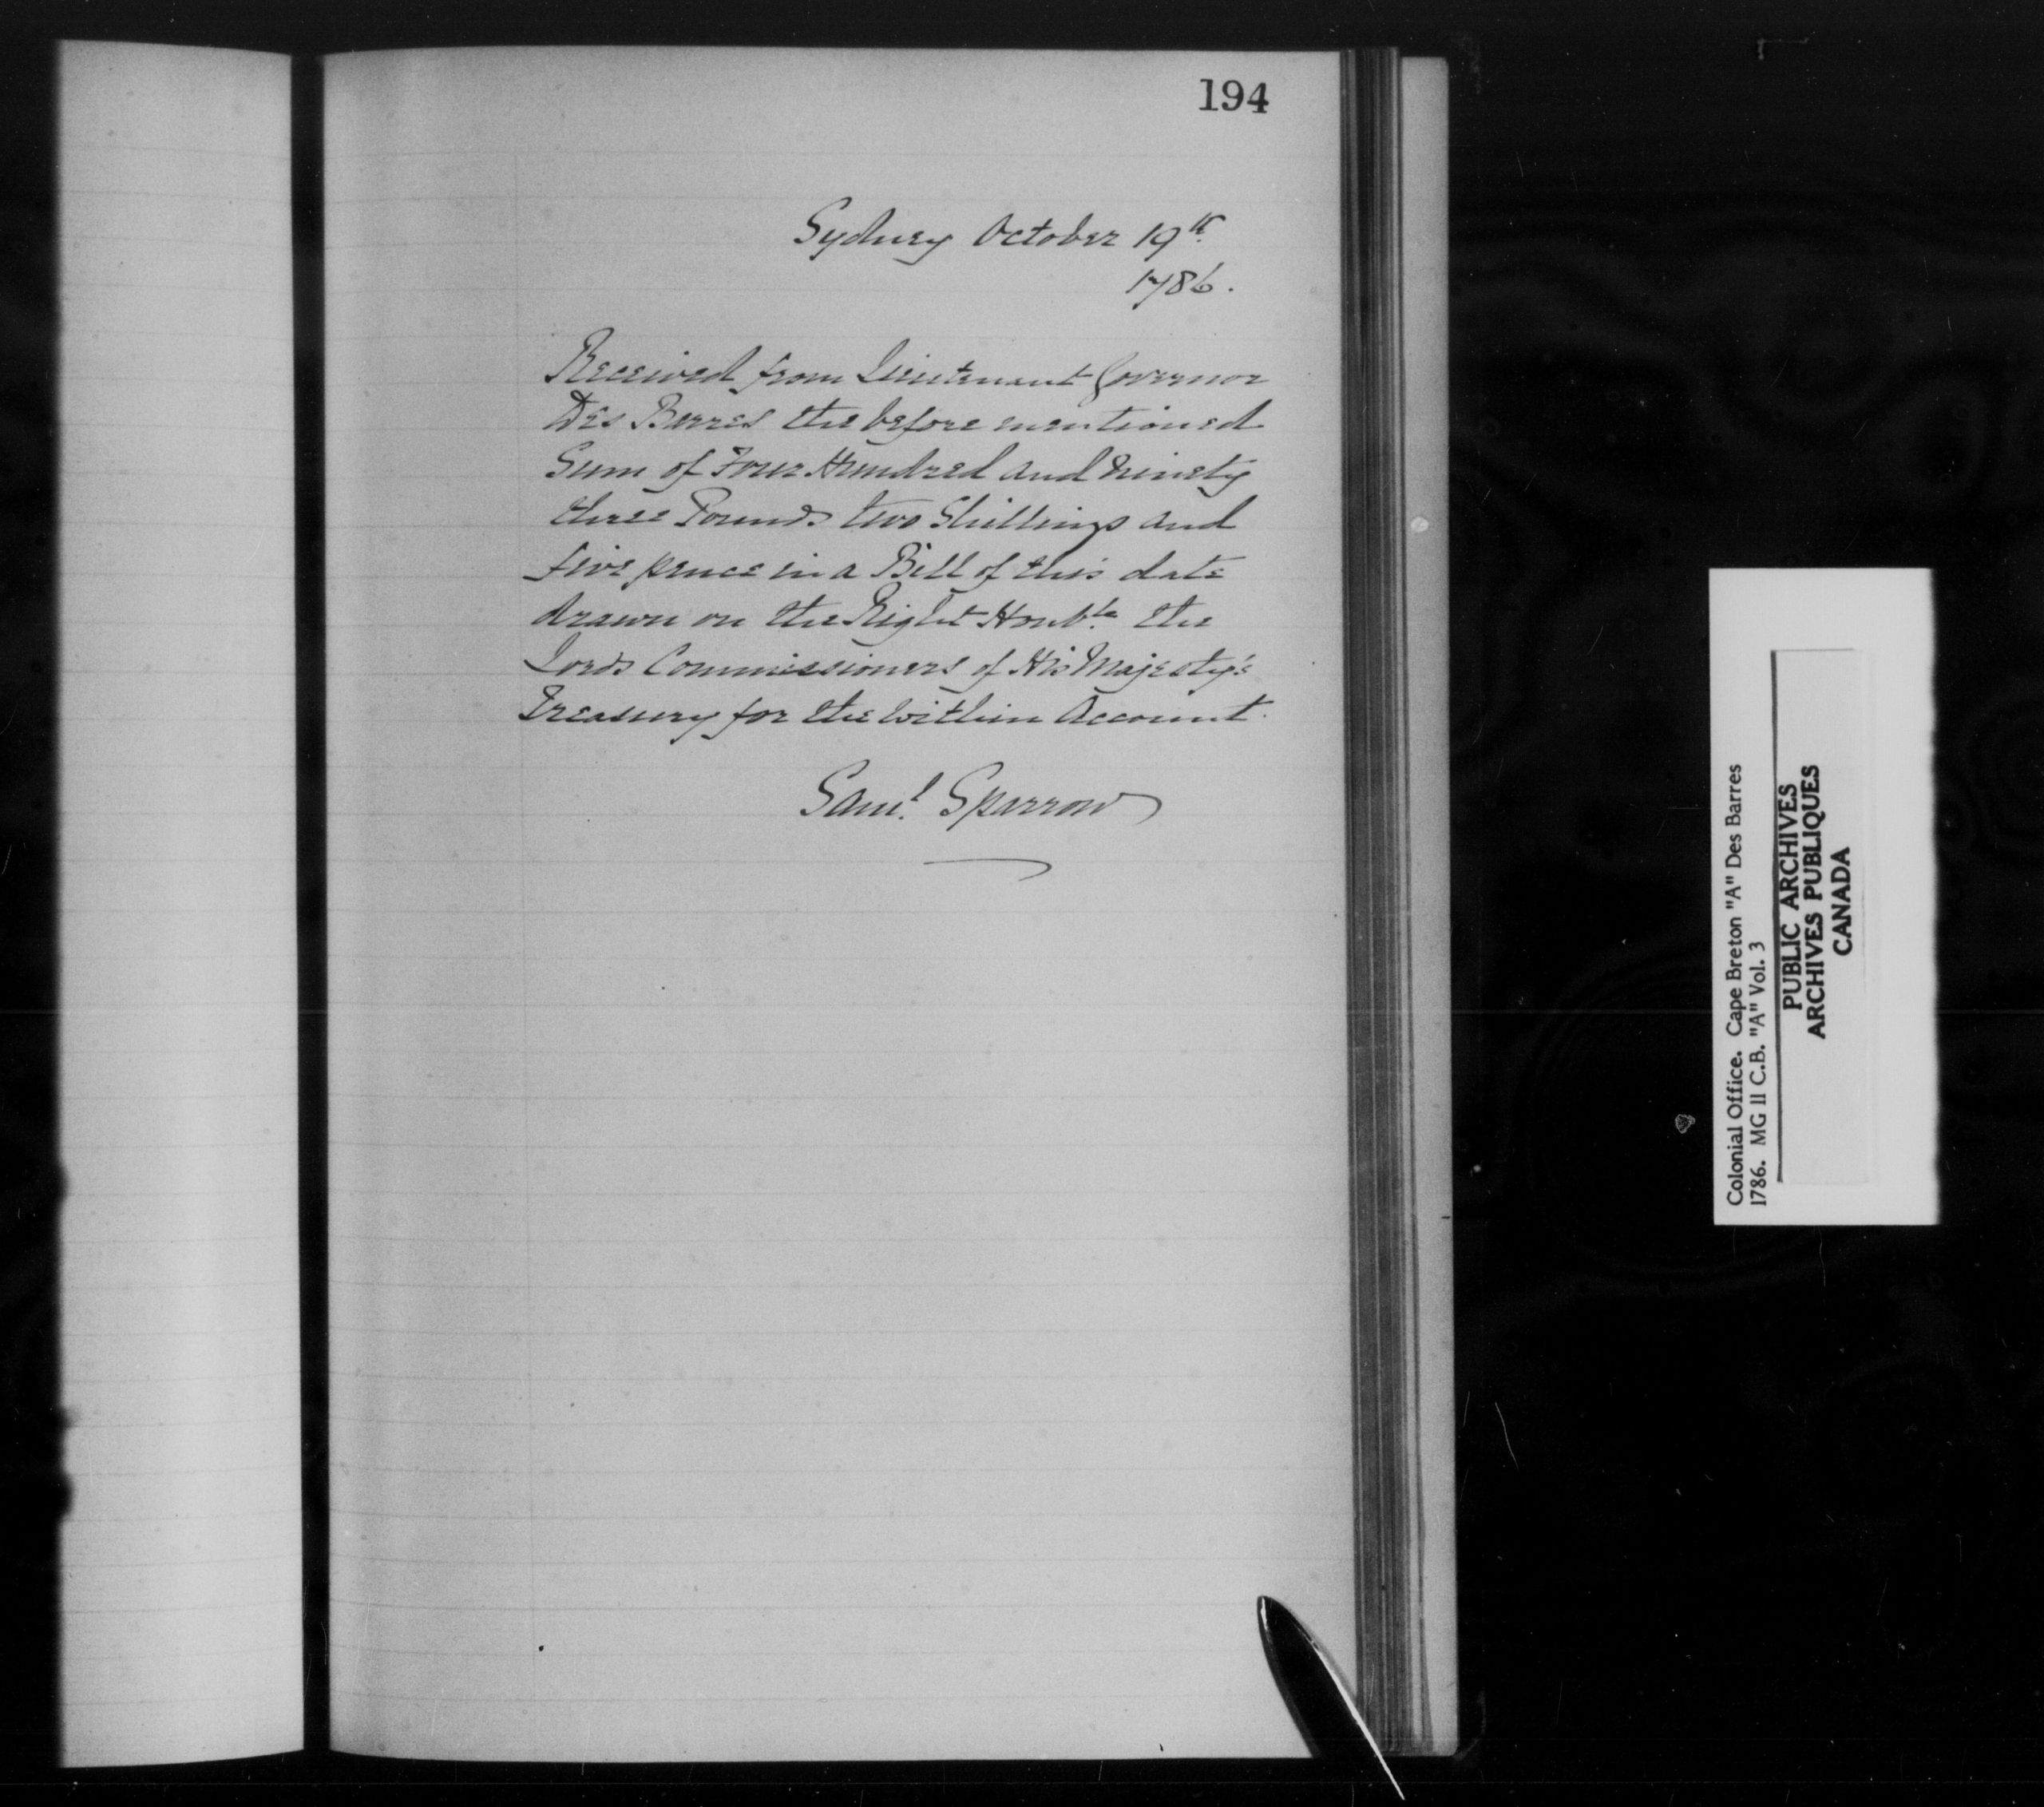 194
Sydney October 19th
1786.
Received from Lieutenant Governor
Des Barres the before mentioned
Sum of Four Hundred and Ninety
three Pounds two Shillings and
five pence in a Bill of this date
drawn on the Right Honble. the
Lords Commissioners of His Majesty's
Treasury for the within Account.
Saml. Sparrow
Colonial Office. Cape Breton "A" Des Barres
1786. MG 11 C.B. "A" Vol. 3
PUBLIC ARCHIVES
ARCHIVES PUBLIQUES
CANADA